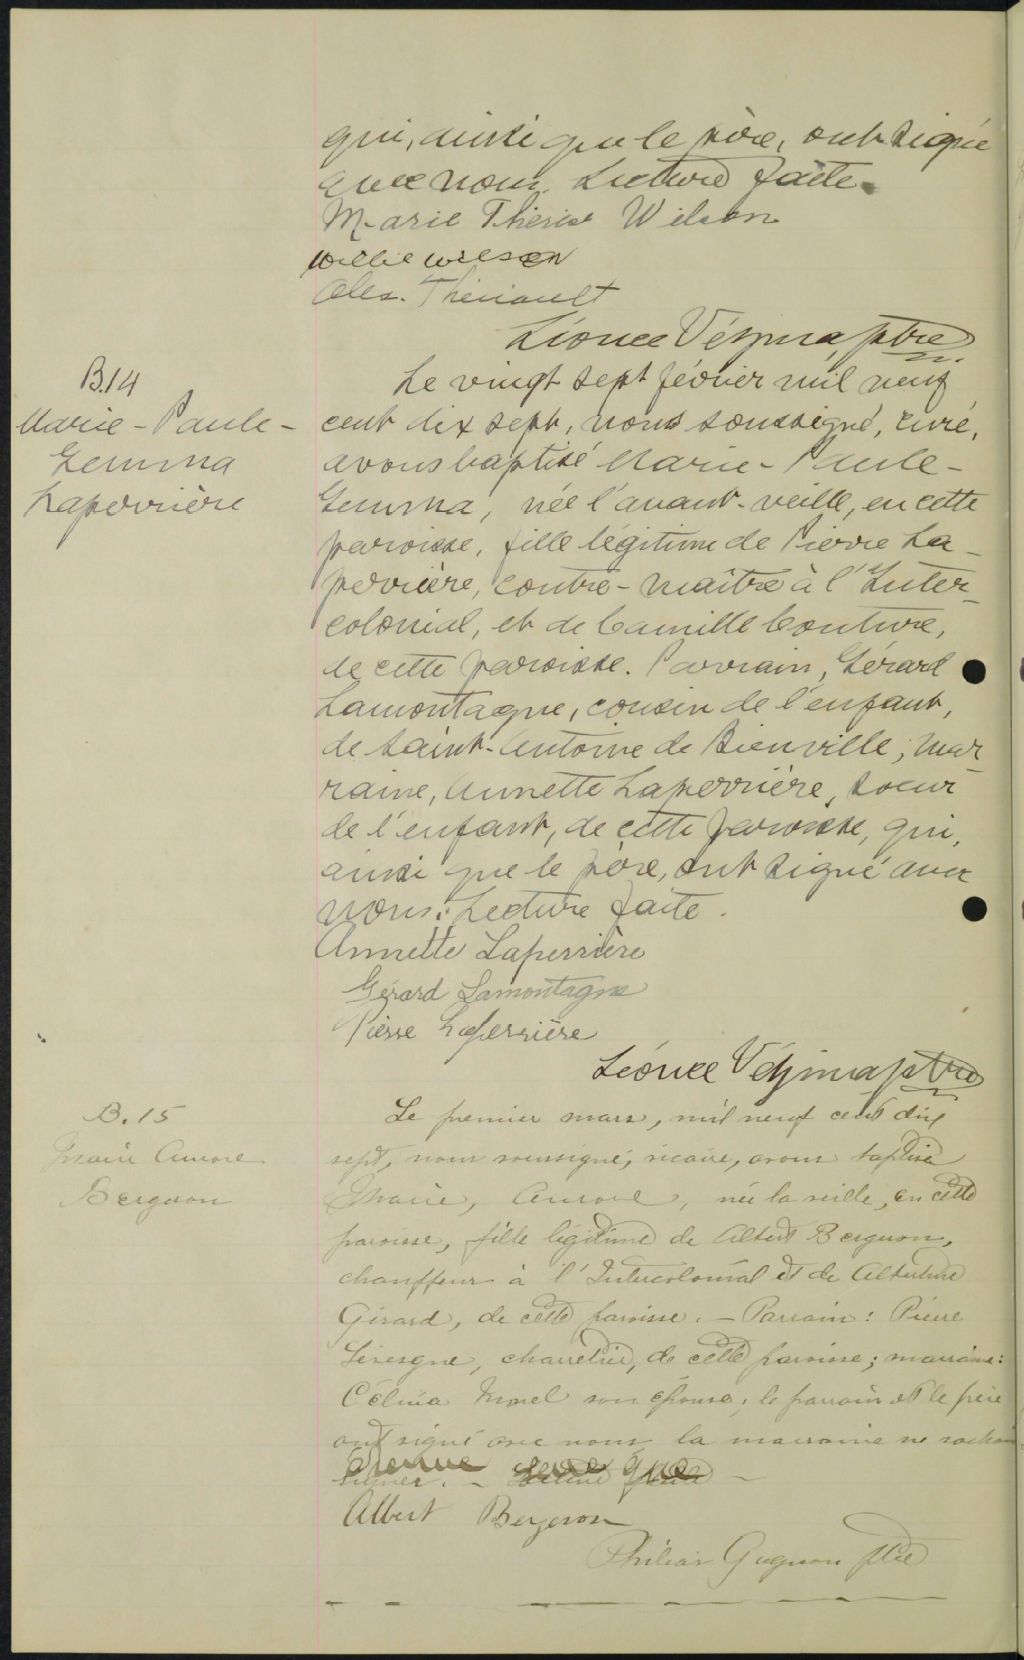 qui, ainsi que le père, ont signé
avec nous. Lecture faite.
Marie Thérèse Wilson
Willie Wilson
Alex. Theriault
Léonce Vézina, ptre
B.14
Marie-Paule-
Gemma
Laperrière
Le vingt sept février mil neuf
cent dix sept, nous soussigné, curé,
avons baptisé Marie-Paule-
Gemma, née l'avant-veille, en cette
paroisse, fille légitime de Pierre La-
perrière, contre-maître à l'Inter-
colonial, et de Camille Couture,
de cette paroisse. Parrain, Gérard
Lamontagne, cousin de l'enfant,
de Saint-Antoine de Bienville; mar-
raine, Annette Laperrière, soeur
de l'enfant, de cette paroisse, qui,
ainsi que le père, ont signé avec
nous. Lecture faite.
Annette Laperrière
Gérard Lamontagne
Pierre Laperrière
Léonce Vézina ptre
B. 15
Marie Aurore
Bergeron
Le premier mars, mil neuf cent dix
sept, nous soussigné, vicaire, avons baptisé
Marie, Aurore, née la veille, en cette
paroisse, fille légitime de Albert Bergeron,
chauffeur à l'Intercolonial et de Albertine
Girard, de cette paroisse. — Parrain: Pierre
Lévesque, charretier, de cette paroisse; marraine:
Célina Morel son épouse; le parrain et le père
ont signé avec nous, la marraine ne sachant
signer. — Lecture faite —
Albert Bergeron
Philias Gagnon ptre